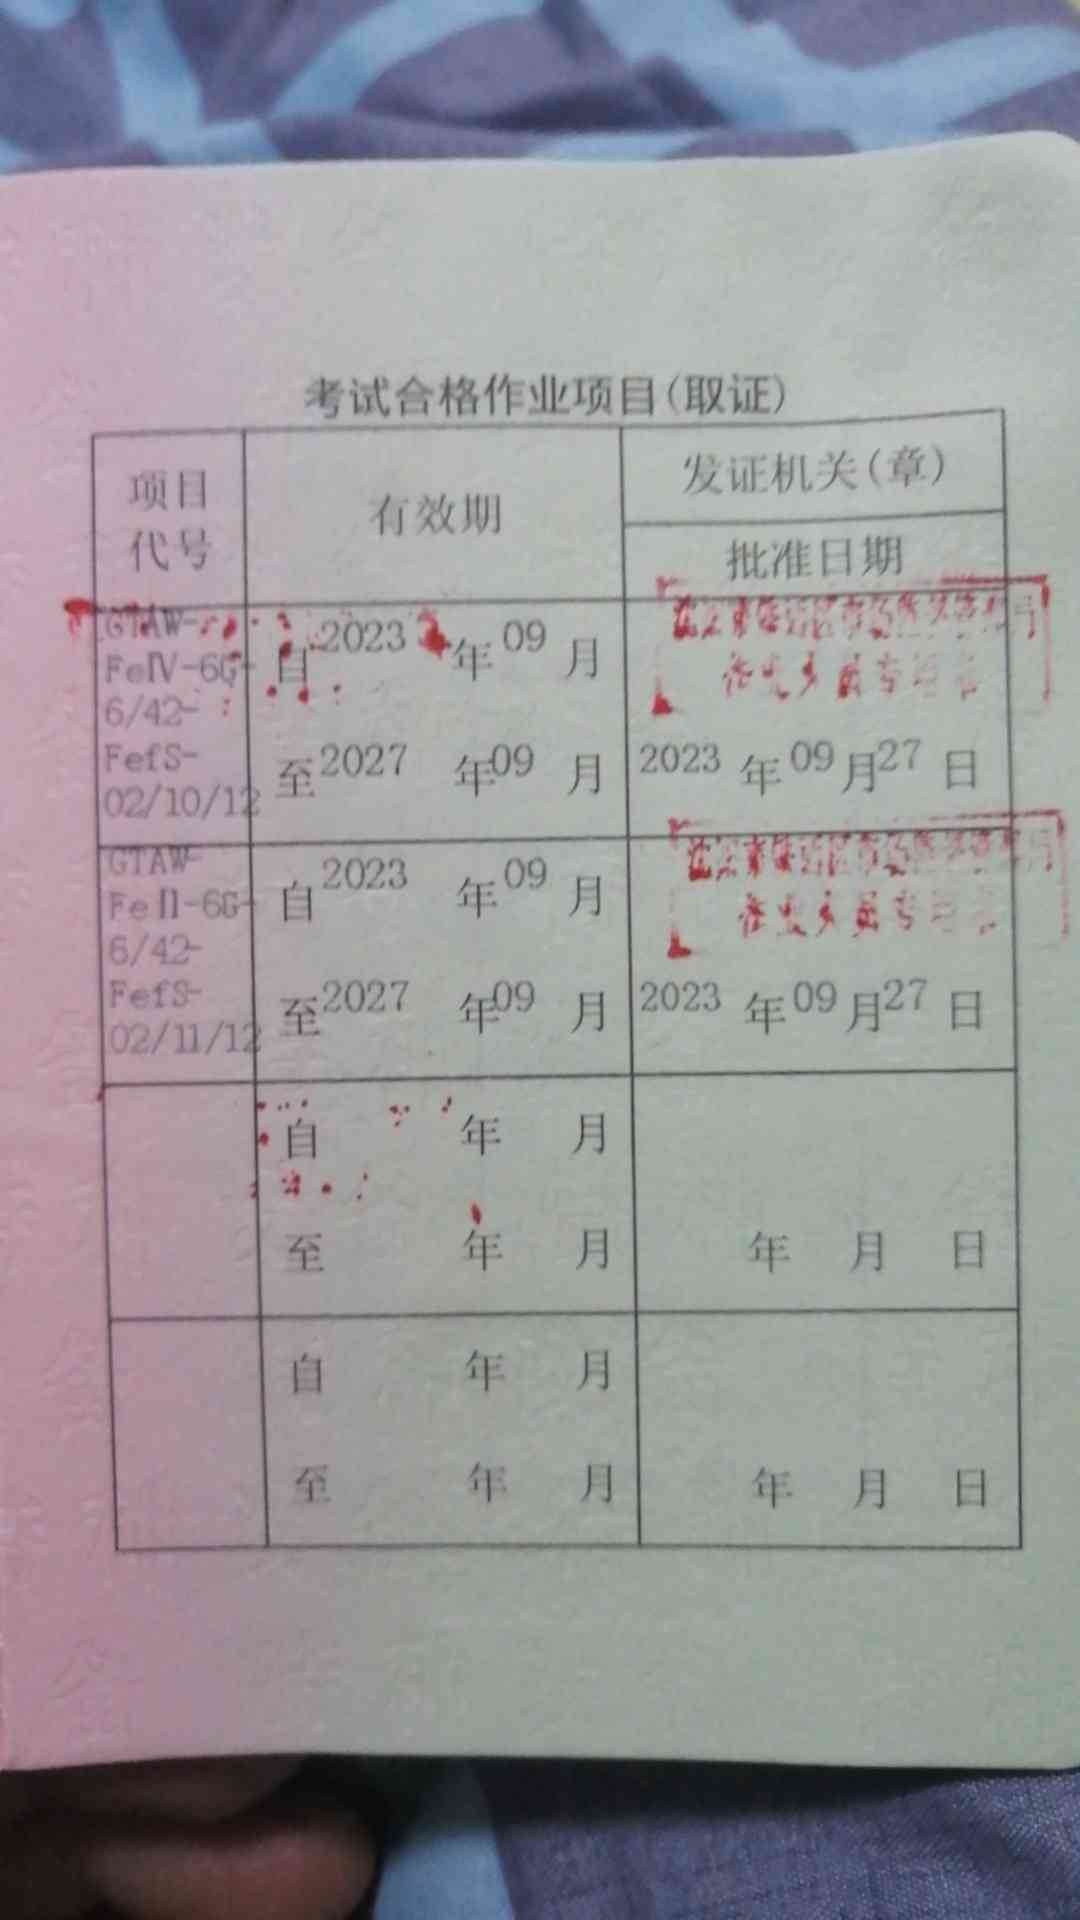 考试合格作业项目(取证)
项目代号
有效期
发证机关(章)
批准日期
GTAW-
FeⅣ-6G-
6/42-
FefS-
02/10/12
自2023年09月
至2027年09月
2023年09月27日
GTAW-
FeⅡ-6G-
6/42-
FefS-
02/11/12
自2023年09月
至2027年09月
2023年09月27日
自 年 月
至 年 月
年 月 日
自 年 月
至 年 月
年 月 日